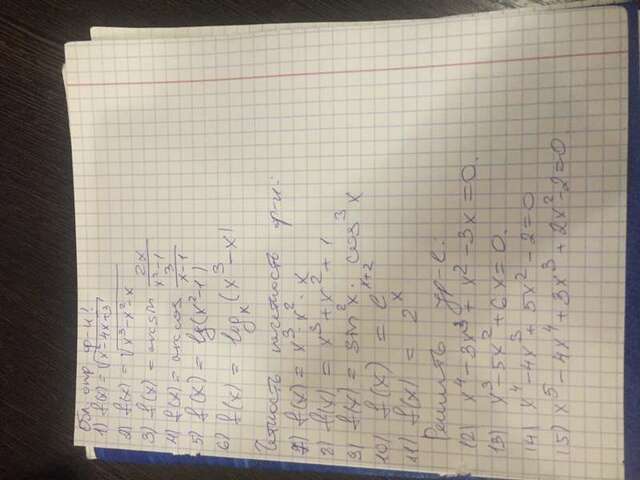 Обл. опр. ф-и!
1) f(x) = √x²-4x+3
2) f(x) = √x³-x²-x
3) f(x) = arcsin 2x/(x²-1)
4) f(x) = arccos 3/(x-1)
5) f(x) = lg(x²-1)
6) f(x) = logₓ(x³-x)
Четность нечетность ф-и:
7) f(x) = x³·x²·x
8) f(x) = x³+x²+1
9) f(x) = sin²x · cos³x
10) f(x) = e^(x+2)
11) f(x) = 2^x
Решить ур-е:
12) x⁴-3x³+x²-3x=0.
13) x³-5x²+6x=0.
14) x⁴-4x³+5x²-2=0
15) x⁵-4x⁴+3x³+2x²-2=0.